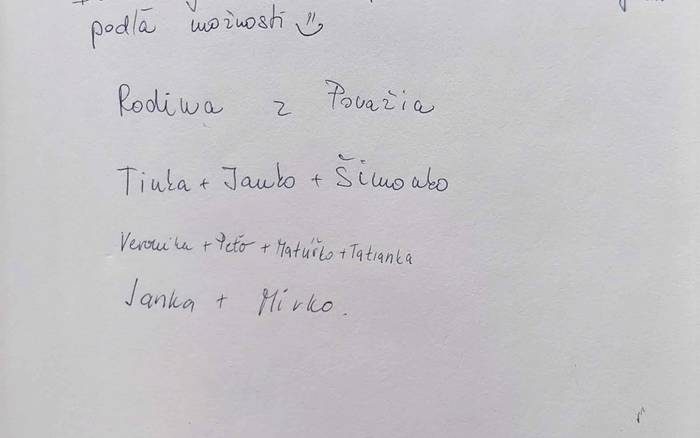 podľa možnosti
Rodina z Považia
Tinka + Janko + Šimonko
Veronika + Peťo + Matúško + Tatianka
Janka + Mirko.